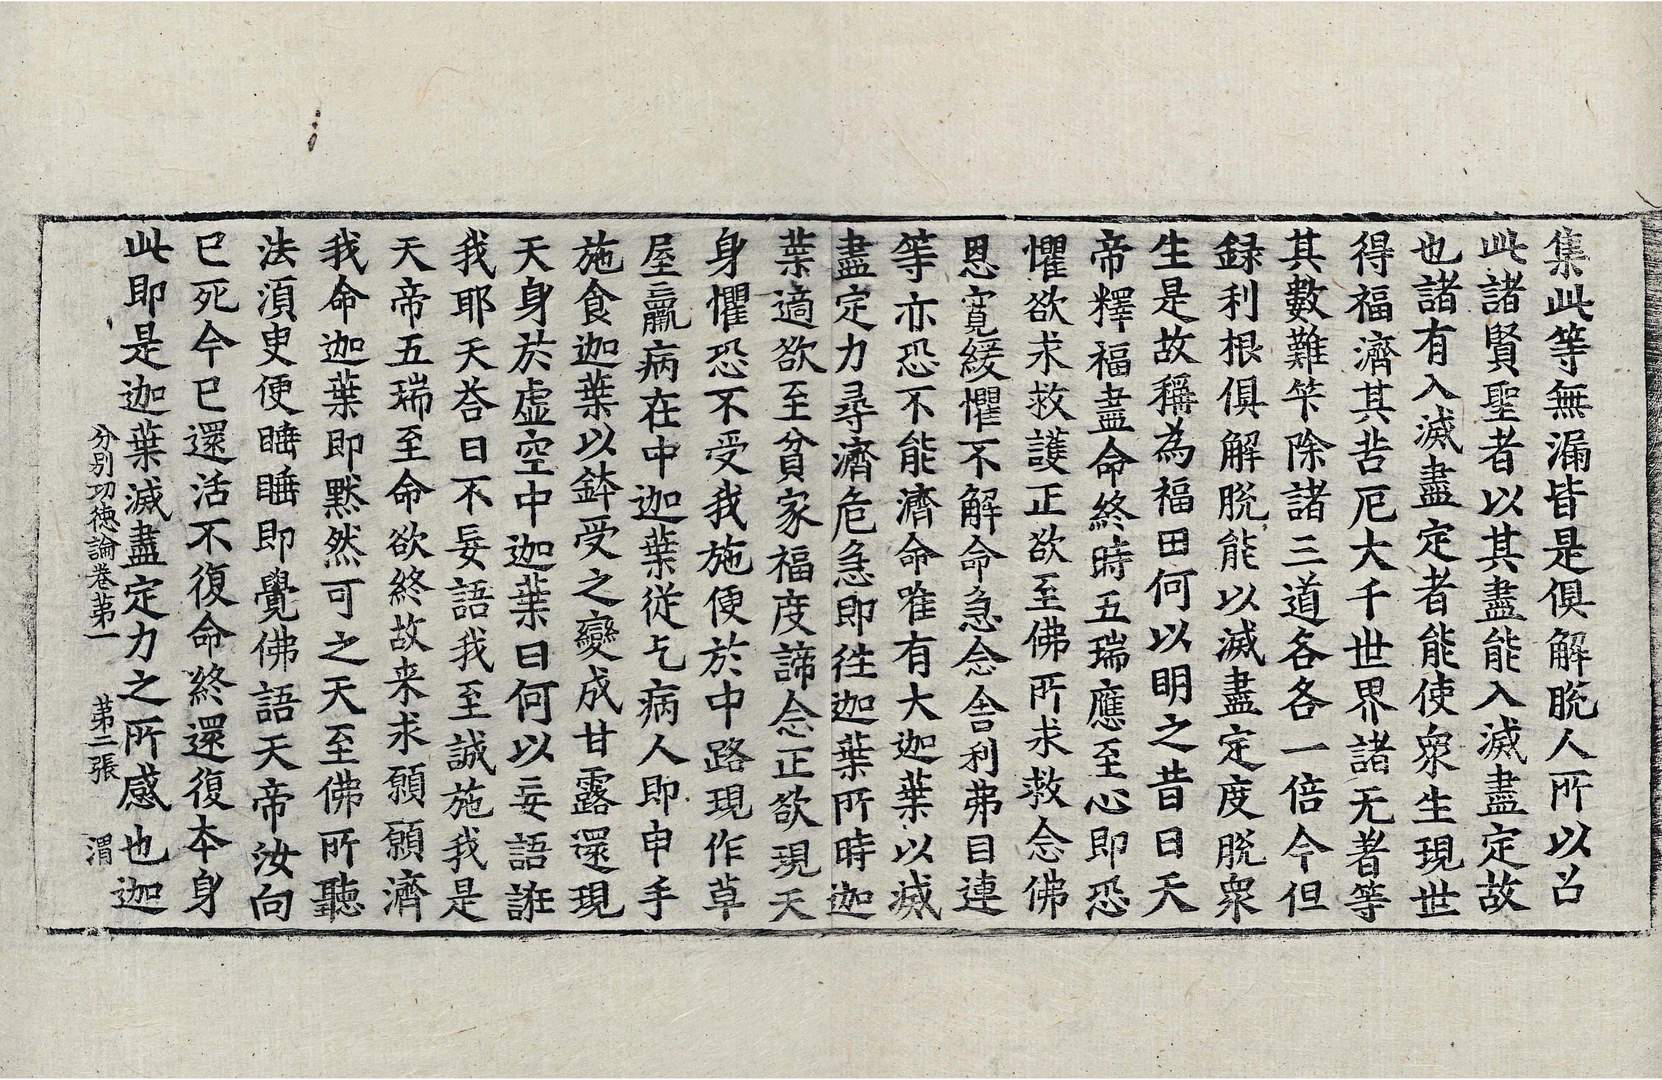 集此等無漏皆是俱解脫人所以召
此諸賢聖者以其盡能入滅盡定故
也諸有入滅盡定者能使衆生現世
得福濟其苦厄大千世界諸无著等
其數難筭除諸三道各各一倍今但
録利根俱解脫能以滅盡定度脫衆
生是故稱為福田何以明之昔日天
帝釋福盡命終時五瑞應至心即恐
懼欲求救護正欲至佛所求救念佛
恩寬緩懼不解命急念舍利弗目連
等亦恐不能濟命唯有大迦葉以滅
盡定力尋濟危急即徃迦葉所時迦
葉適欲至貧家福度諦念正欲現天
身懼恐不受我施便於中路現作草
屋羸病在中迦葉従乞病人即申手
施食迦葉以鉢受之變成甘露還現
天身於虛空中迦葉曰何以妄語誑
我耶天荅曰不妄語我至誠施我是
天帝五瑞至命欲終故来求願願濟
我命迦葉即默然可之天至佛所聽
法湏臾便睡睡即覺佛語天帝汝向
已死今已還活不復命終還復本身
此即是迦葉滅盡定力之所感也迦
分別功徳論卷苐一　苐二張　渭